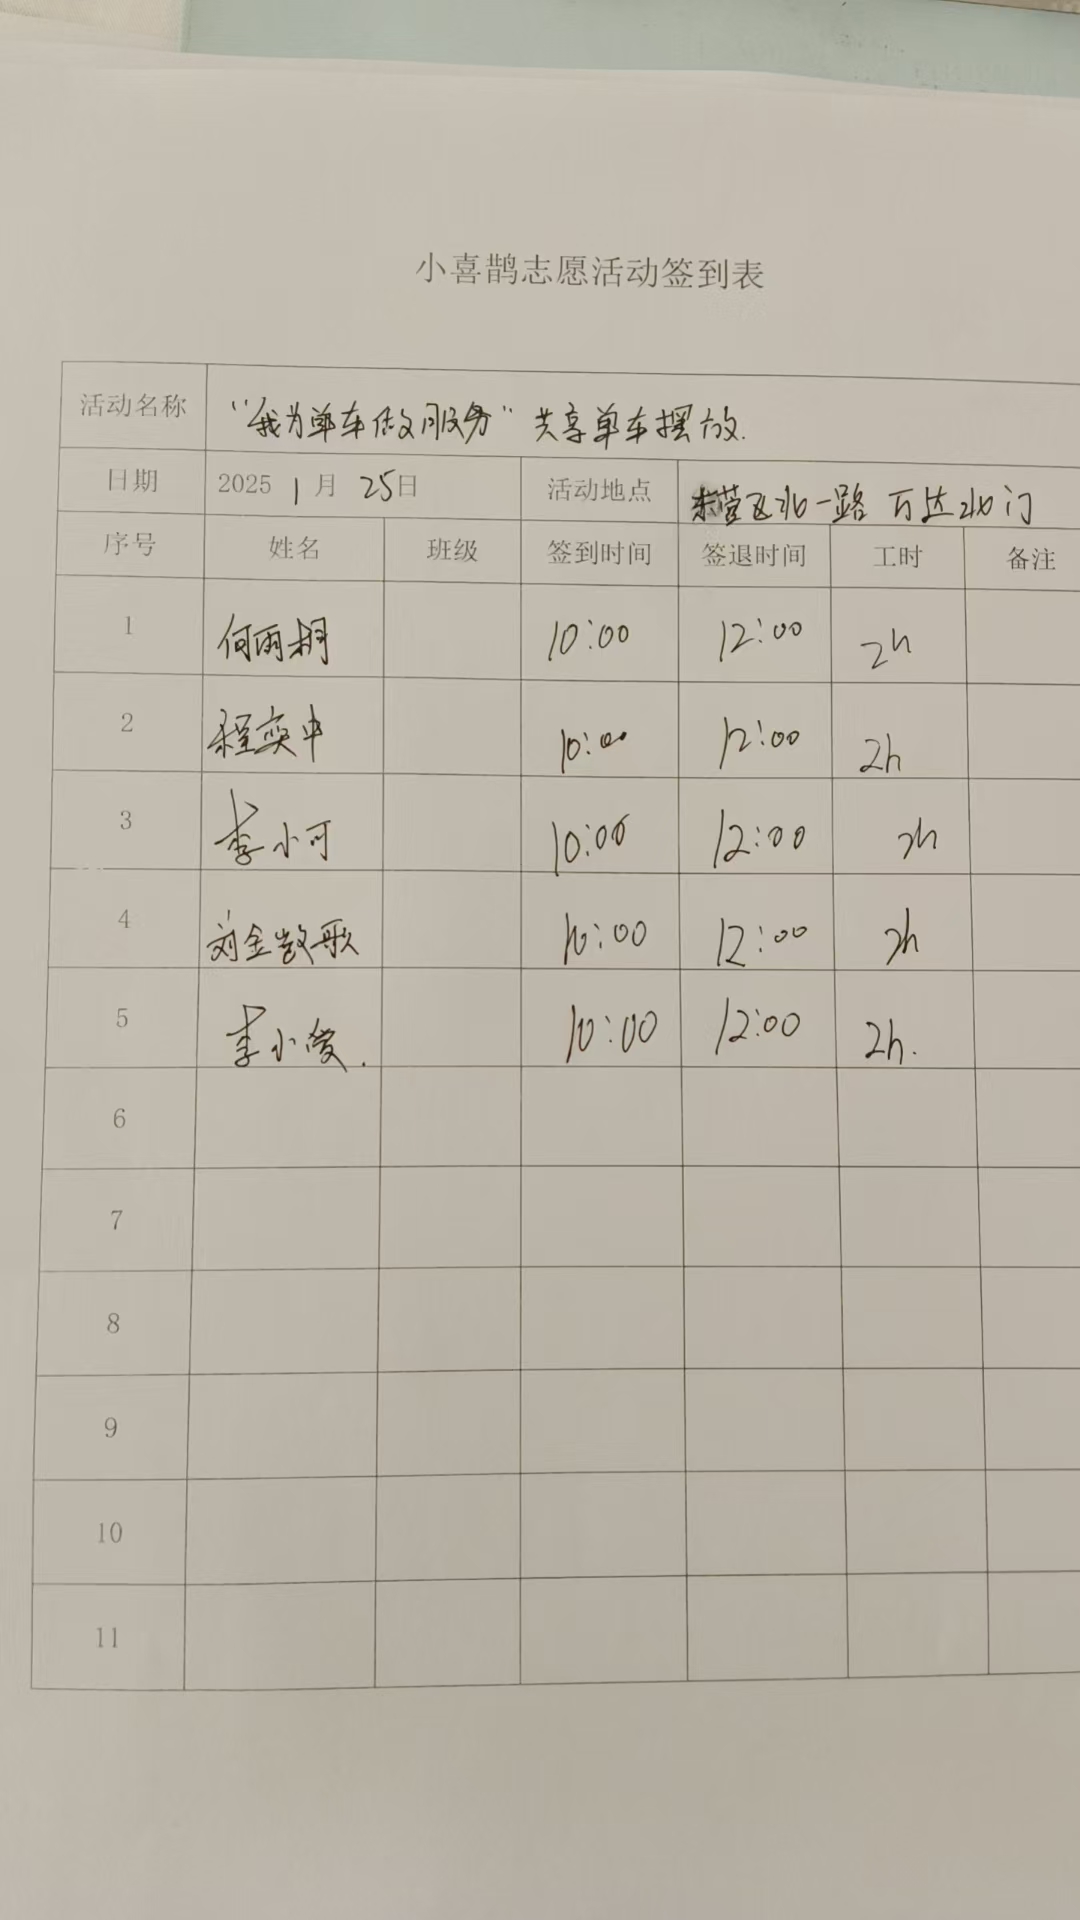 小喜鹊志愿活动签到表
活动名称 “我为单车做服务”共享单车摆放.
日期 2025 1月 25日 活动地点 东营区北一路 万达北门
序号 姓名 班级 签到时间 签退时间 工时 备注
1 何雨桐 10:00 12:00 2h
2 程奕中 10:00 12:00 2h
3 李小可 10:00 12:00 2h
4 刘金数歌 10:00 12:00 2h
5 李小爱. 10:00 12:00 2h.
6
7
8
9
10
11